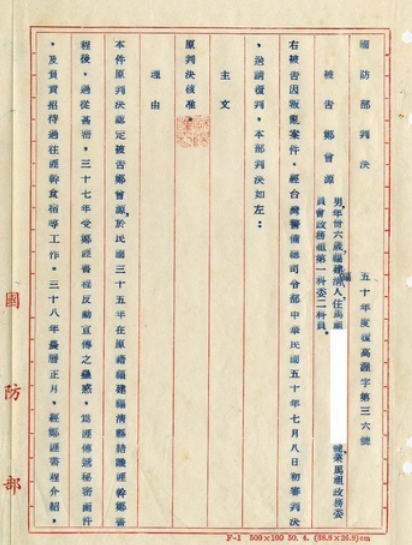 國防部判決
五十年度覆高證字第三六號
被告鄭曾源
男,年卅六歲,福建福清人,住馬祖
業馬祖政務委
員會政務組第一科委二科員。
右被告因叛亂案件,經台灣警備總司令部中華民國五十年七月八日初審判決
,送請覆判,本部判決如左:
主文
原判決核准。
理由
本件原判決認定被告鄭曾源,於民國三十五年在原籍福建福清縣結識匪幹鄭書
程後,過從甚密,三十七年受鄭匪書程反動宣傳之蠱惑,為匪傳遞秘密函件
,及負責招待過往匪幹食宿等工作。三十八年農曆正月,經鄭匪書程介紹,
國防部
F-1 500×100 50. 4. (38.8×26.8)cm